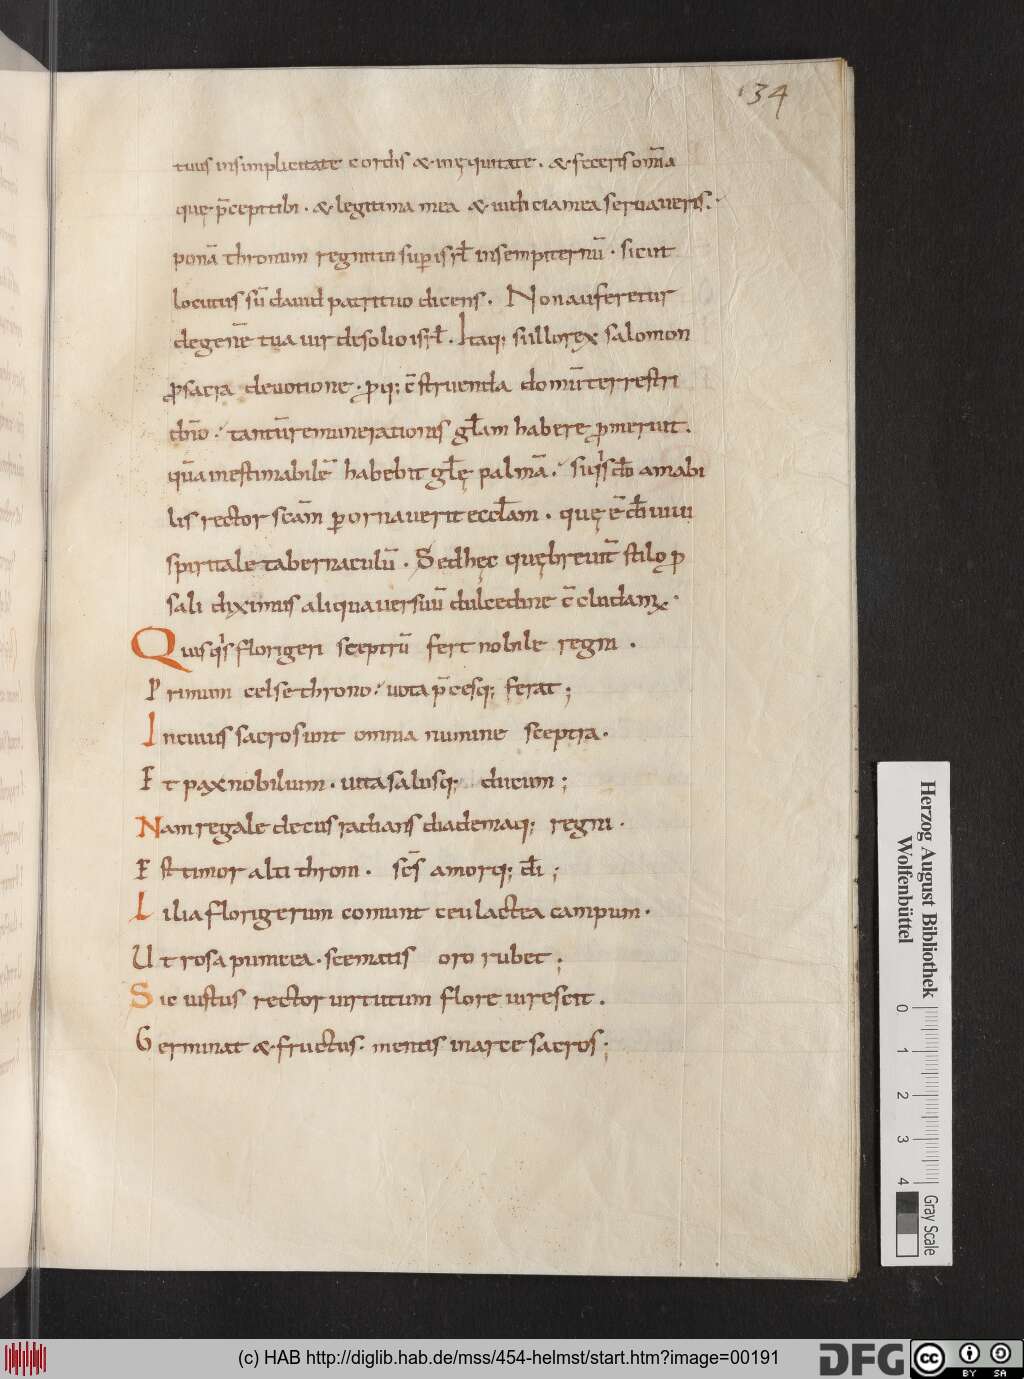 34
tuus insimplicitate cordis & inęquitate. & feceris om̄ia
quę p̄cepi tibi. & legitima mea & iudicia mea servaveris.
ponā thronum regni tui sup isrł insempiternū. sicut
locutus sū david patri tuo dicens. Non auferetur
degenēe tua vir desolio isrł. Itaq; si ille rex salomon
ꝓ sacra devotione. ꝓq; c̄struenda domū terrestri
dn̄o. tantū remunerationis głam habere ꝓmeruit.
quā inestimabilē habebit głę palmā. siquis do amabi
lis rector scām ꝑornaverit eccłam. quę ē di vivi
spiritale tabernaculū. Sed hęc quę brevit̄ stilo p
sali diximus aliqua versuū dulcedine c̄cludamꝰ.
Quisqs florigeri sceptrū fert nobile regni.
Primum celse throno. vota p̄cesq; ferat;
In cuius sacro sunt omnia numine sceptra.
Et pax nobilium. vita salusq; ducum;
Nam regale decus radians diademaq; regni.
Est timor alti throni. scs̄ amorq; dī;
Lilia florigerum comunt ceu lactea campum.
Ut rosa punicea. scematis oro rubet;
Sic iustus rector virtutum flore virescit.
Germinat & fructus. mentis in arce sacros;
Herzog August Bibliothek
Wolfenbüttel
0 1 2 3 4
Gray Scale
(c) HAB http://diglib.hab.de/mss/454-helmst/start.htm?image=00191
DFG
cc BY SA